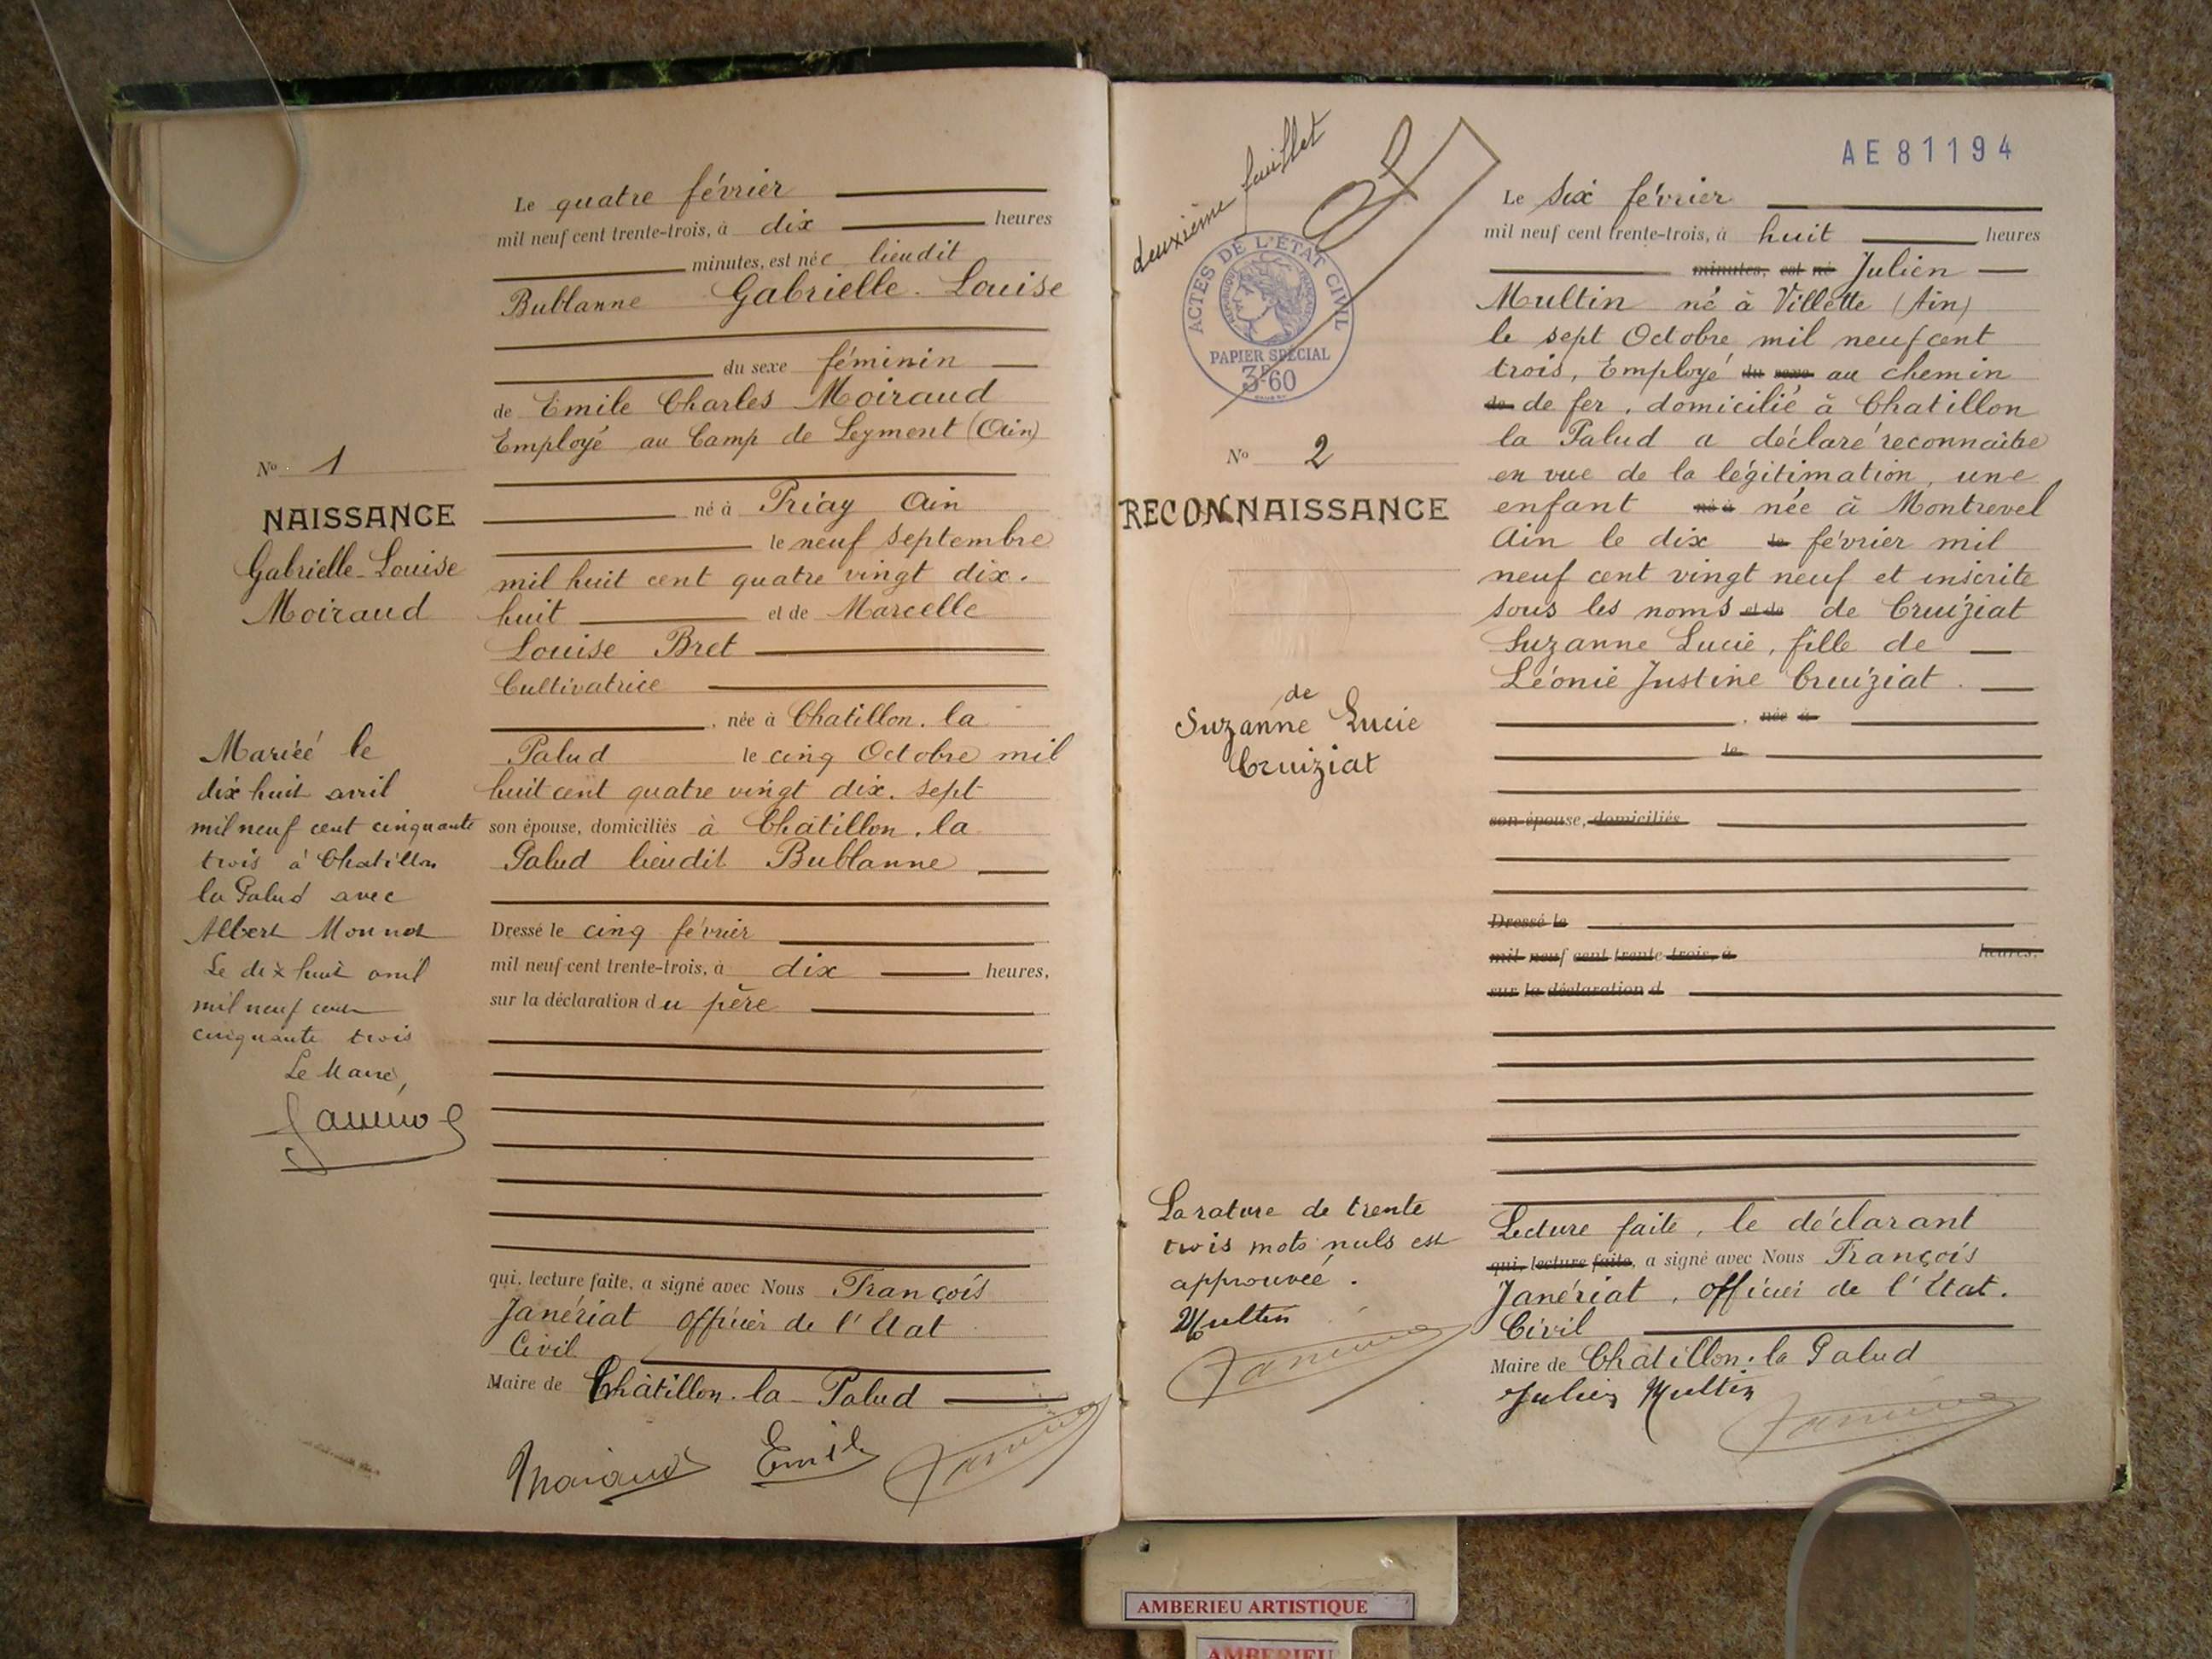 Le quatre février
mil neuf cent trente-trois, à dix heures
minutes, est née lieudit
Bublanne Gabrielle-Louise
du sexe féminin
de Emile Charles Moiraud
Employé au Camp de Leyment (Ain)
né à Priay Ain
le neuf Septembre
mil huit cent quatre vingt dix.
huit et de Marcelle
Louise Bret
Cultivatrice
, née à Chatillon. la
Palud le cinq Octobre mil
huit cent quatre vingt dix. sept
son épouse, domiciliés à Châtillon. la
Palud lieudit Bublanne
Dressé le cinq février
mil neuf cent trente-trois, à dix heures,
sur la déclaration du père
qui, lecture faite, a signé avec Nous François
Janériat Officier de l'Etat
Civil
Maire de Châtillon-la-Palud
Moiraud Emile
No 1
NAISSANCE
Gabrielle-Louise
Moiraud
Mariée le
dix huit avril
mil neuf cent cinquante
trois à Chatillon
la Palud avec
Albert
Le dix huit avril
mil neuf cent
cinquante trois
Le Maire,
deuxième feuillet
ACTES DE L'ÉTAT CIVIL
RÉPUBLIQUE FRANÇAISE
PAPIER SPÉCIAL
3F60
No 2
RECONNAISSANCE
de
Suzanne Lucie
Cruiziat
La rature de trente
trois mots nuls est
approuvée.
Multin
AE81194
Le Six février
mil neuf cent trente-trois, à huit heures
minutes, est né Julien
Multin né à Villette (Ain)
le sept Octobre mil neuf cent
trois, Employé du sexe au chemin
de de fer, domicilié à Chatillon
la Palud a déclaré reconnaître
en vue de la légitimation, une
enfant né à née à Montrevel
Ain le dix le février mil
neuf cent vingt neuf et inscrite
sous les noms et de de Cruiziat
Suzanne Lucie, fille de
Léonie Justine Cruiziat.
, née à
le
son épouse, domiciliés
Dressé le
mil neuf cent trente-trois, à heures,
sur la déclaration d
Lecture faite, le déclarant
qui, lecture faite, a signé avec Nous François
Janériat, Officier de l'Etat.
Civil
Maire de Châtillon-la Palud
Julien Multin
AMBERIEU ARTISTIQUE
AMBERIEU